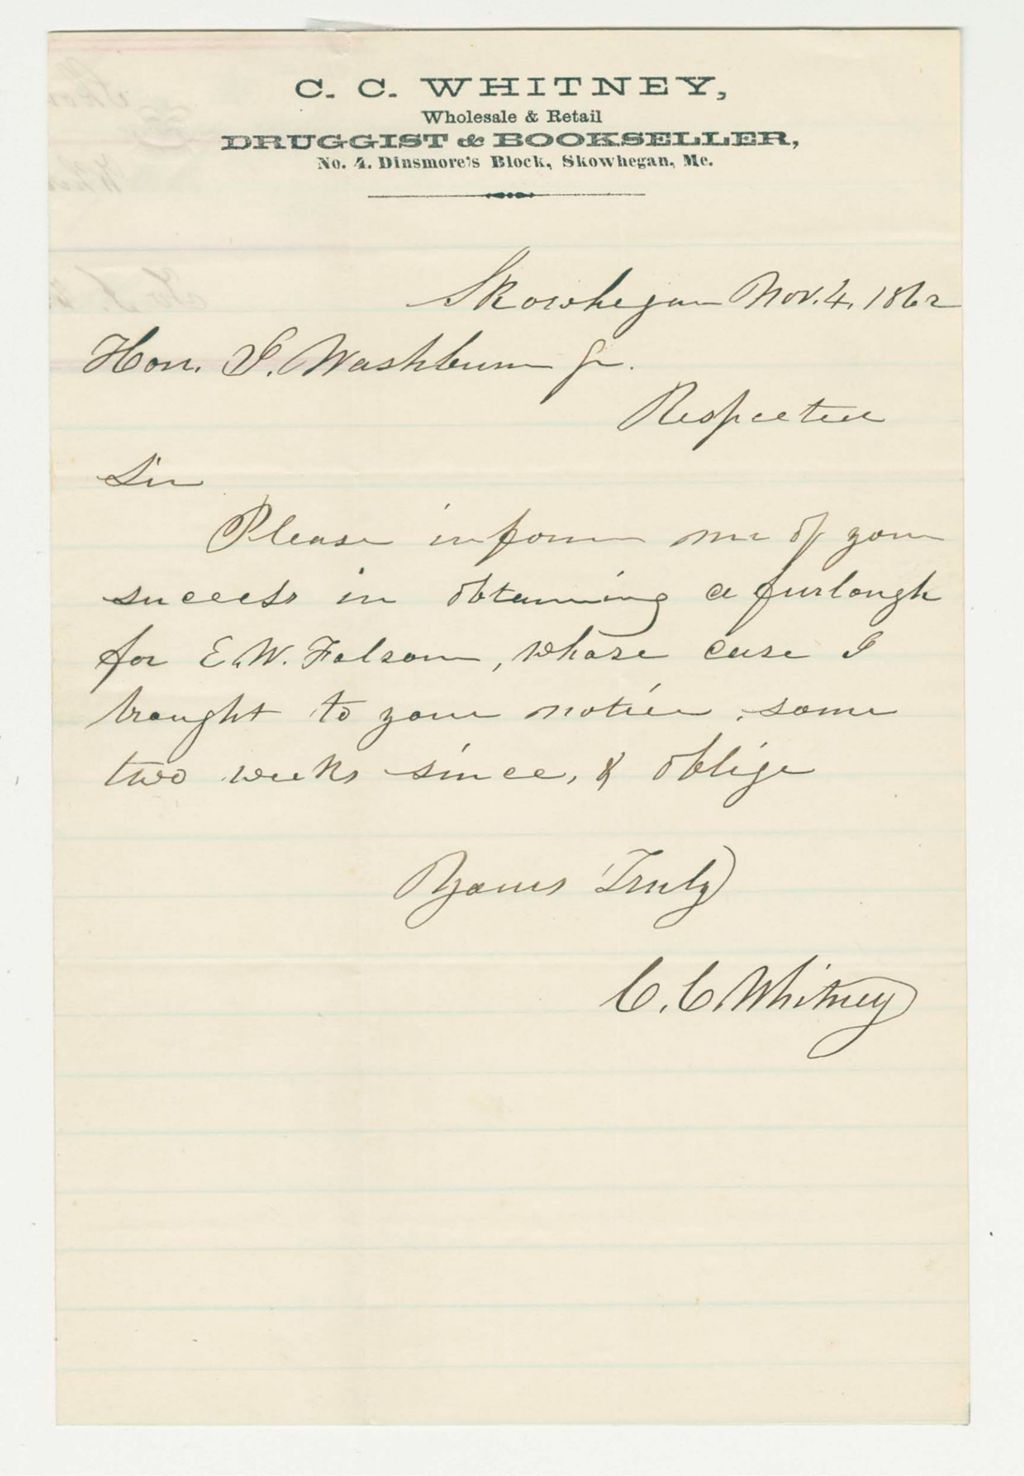 C. C. WHITNEY,
Wholesale & Retail
DRUGGIST & BOOKSELLER,
No. 4. Dinsmore's Block, Skowhegan, Me.
Skowhegan Nov. 4, 1862
Hon. I. Washburn Jr.
Respected
Sir
Please inform me of your
success in obtaining a furlough
for E. W. Folsom, whose case I
brought to your notice, some
two weeks since, & oblige
Yours Truly
C. C. Whitney